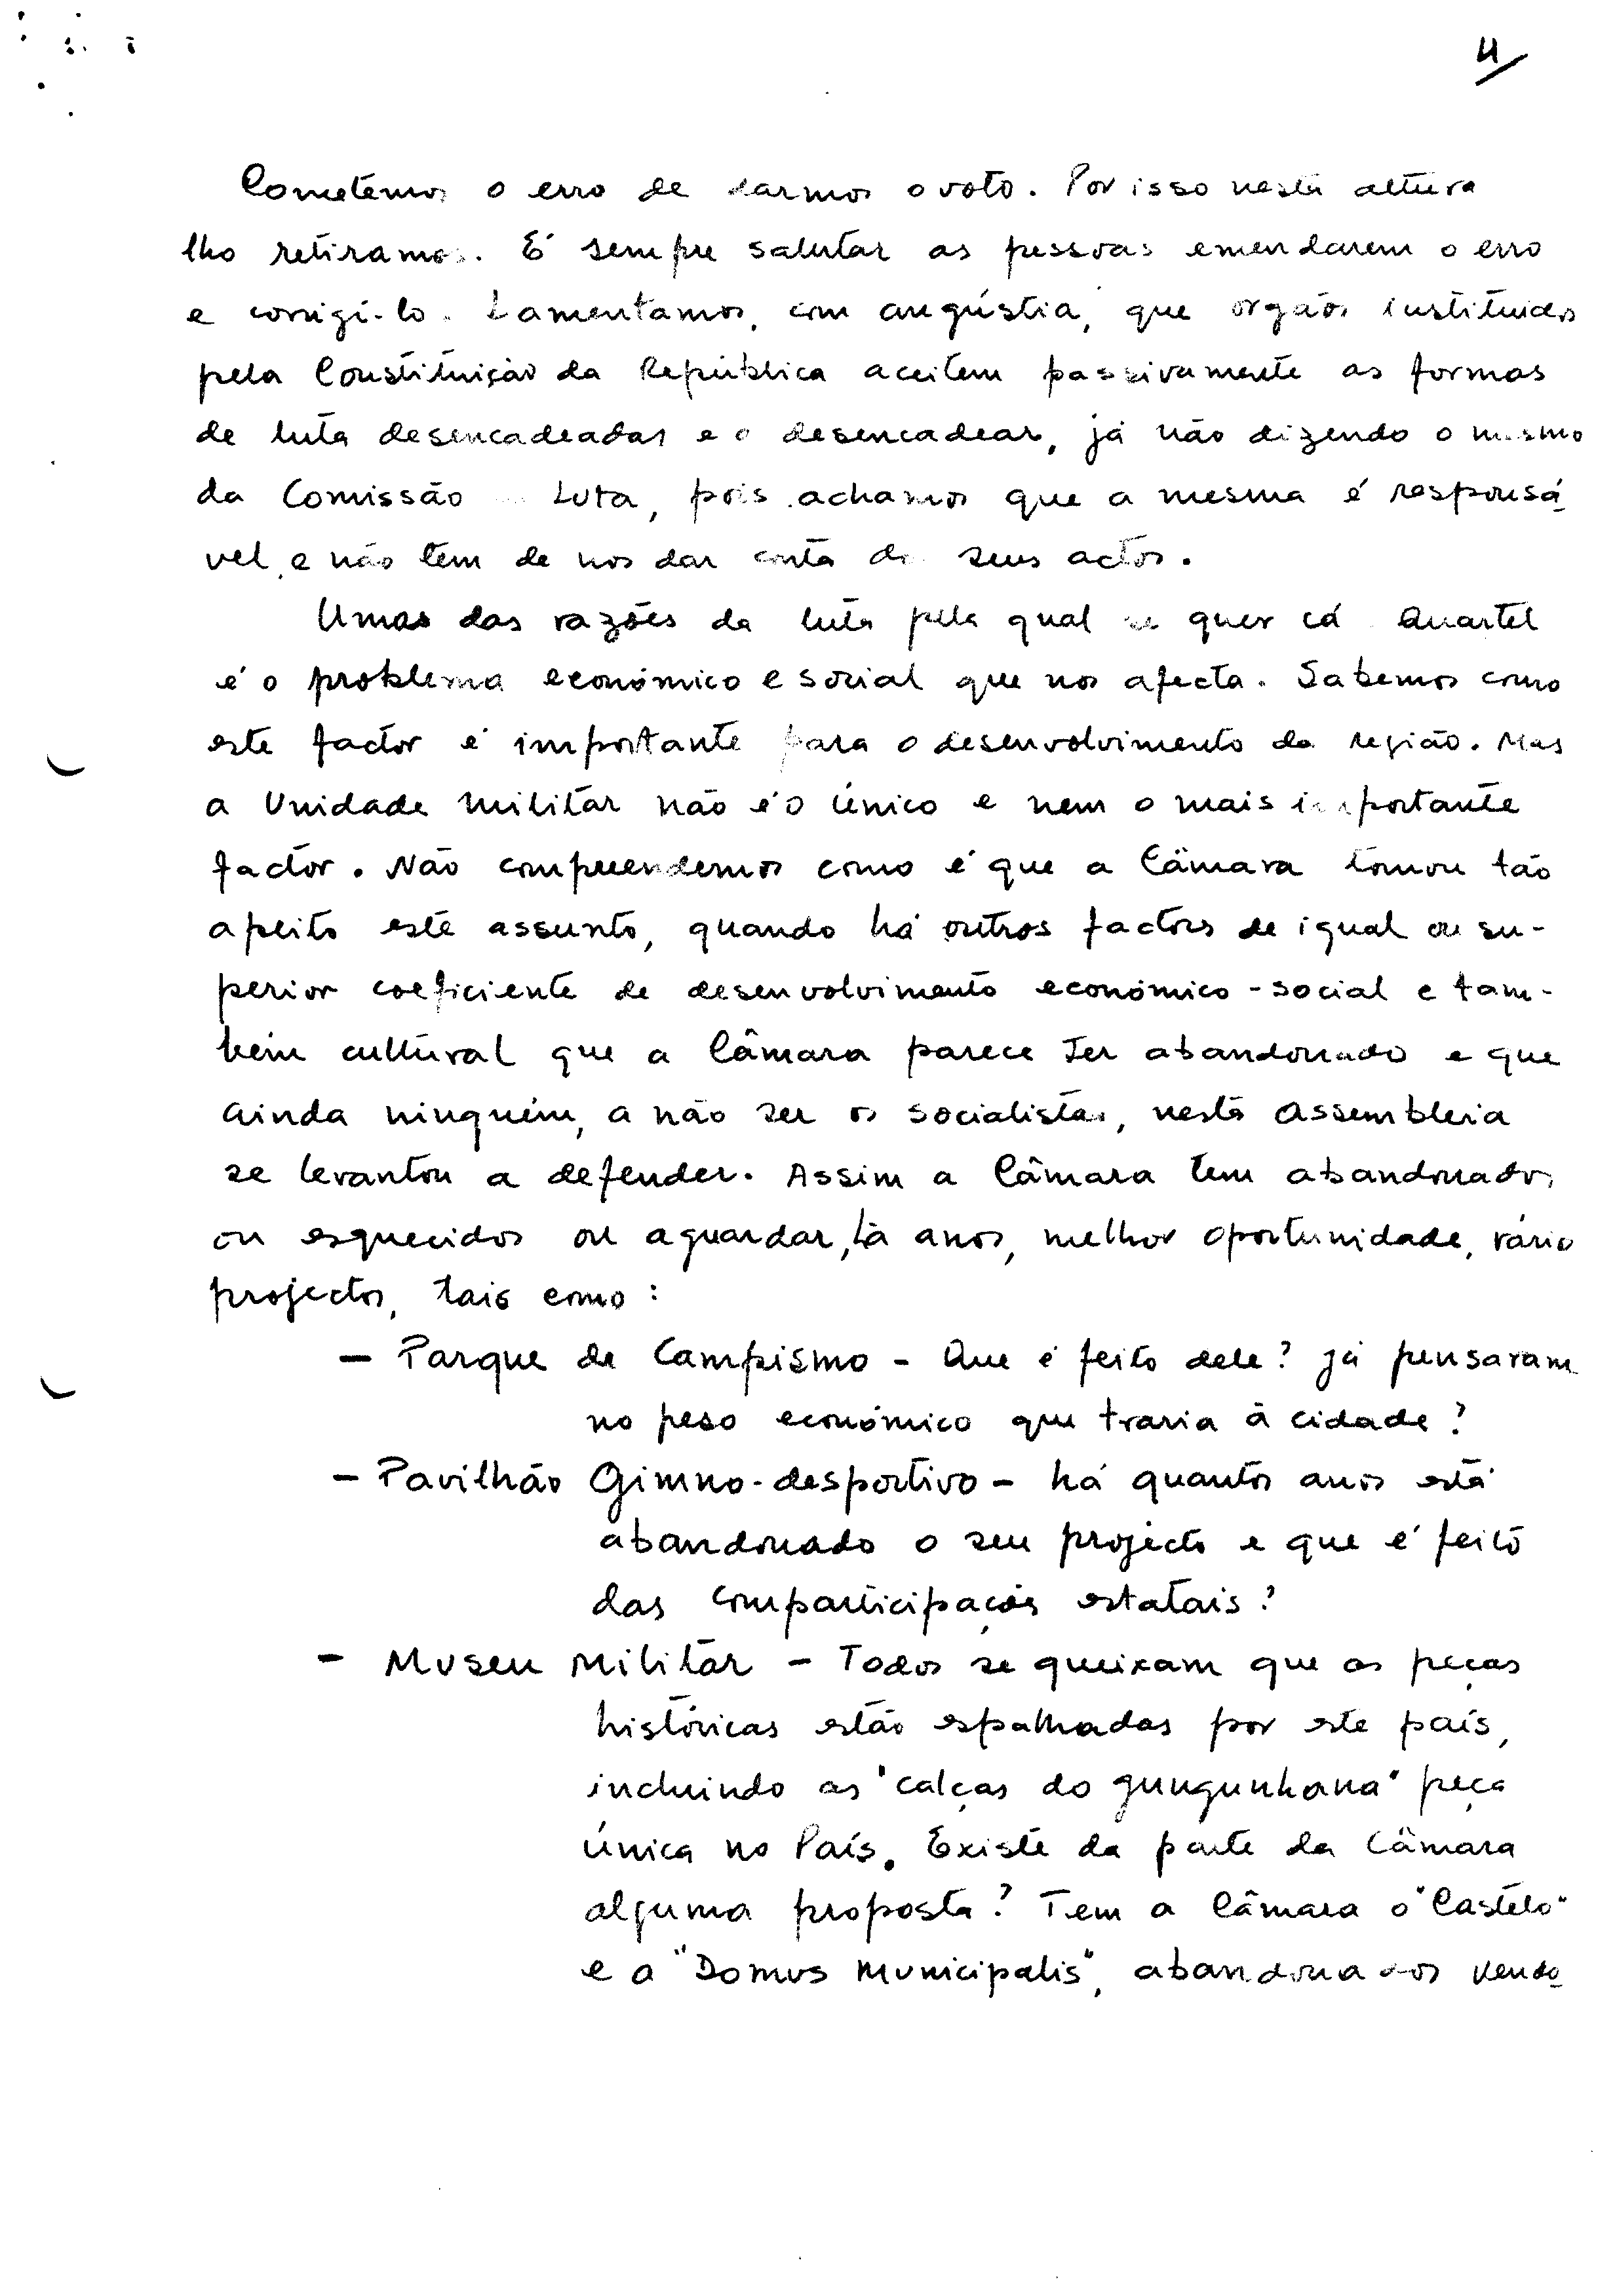 4
Cometemos o erro de darmos o voto. Por isso nesta altura
lho retiramos. É sempre salutar as pessoas emendarem o erro
e corrigi-lo. Lamentamos, com angústia, que orgãos instituidos
pela Constituição da República aceitem passivamente as formas
de luta desencadeadas e o desencadear, já não dizendo o mesmo
da Comissão Luta, pois achamos que a mesma é responsá
vel e não tem de nos dar conta do seus actos.
Umas das razões da luta pela qual se quer cá Quartel
é o problema económico e social que nos afecta. Sabemos como
este factor é importante para o desenvolvimento da região. Mas
a Unidade Militar não é o único e nem o mais importante
factor. Não compreendemos como é que a Câmara tomou tão
apeito este assunto, quando há outros factores de igual ou su-
perior coeficiente de desenvolvimento económico-social e tam-
bém cultural que a Câmara parece ter abandonado e que
ainda ninguém, a não ser os socialistas, nesta Assembleia
se levantou a defender. Assim a Câmara tem abandonados
ou esquecidos ou aguardar, há anos, melhor oportunidade, vário
projectos, tais como:
- Parque de Campismo - Que é feito dele? já pensaram
no peso económico que traria à cidade?
- Pavilhão Gimno-desportivo - há quantos anos está
abandonado o seu projecto e que é feito
das comparticipações estatais?
- Museu Militar - Todos se queixam que as peças
históricas estão espalhadas por este país,
incluindo as "calças do gungunhana" peça
única no País. Existe da parte da Câmara
alguma proposta? Tem a Câmara o "Castelo"
e a "Domus Municipalis", abandonados vendo